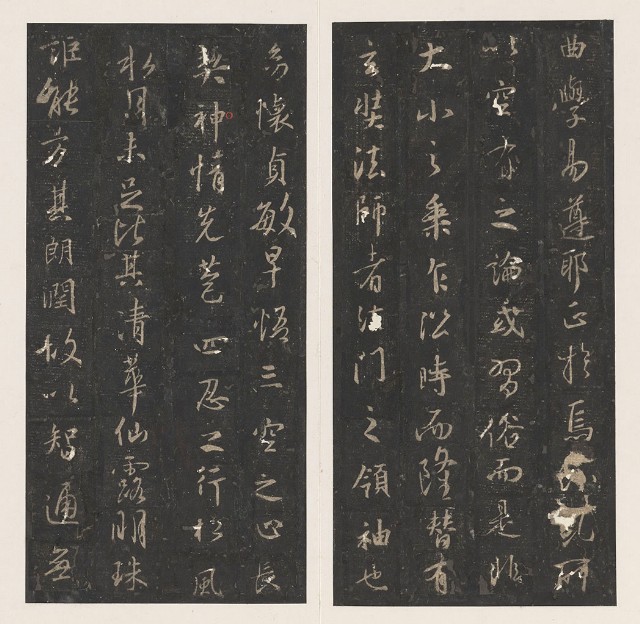 曲學易遵耶正於焉糺所
以空有之論或習俗而是非
大小之乘乍沿時而隆替有
玄奘法師者法門之領袖也
幼懷貞敏早悟三空之心長
契神情先苞四忍之行松風
水月未足比其清華仙露明珠
詎能方其朗潤故以智通無